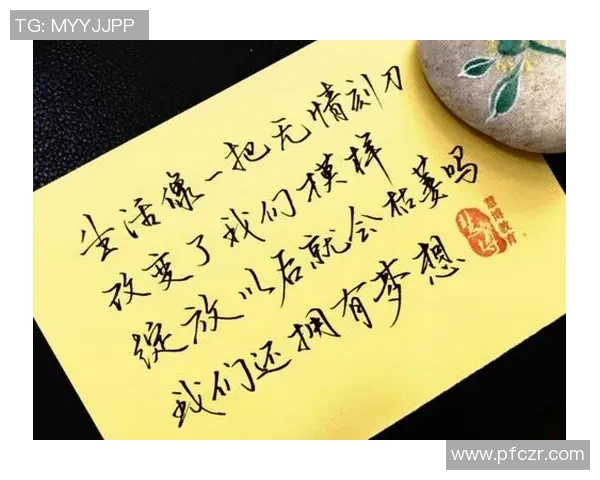 TG: MYYJJPP
生活像一把无情刻刀
改变了我们模样
绽放以后就会枯萎吗
我们还拥有梦想
慧博教育
www.pfczr.com